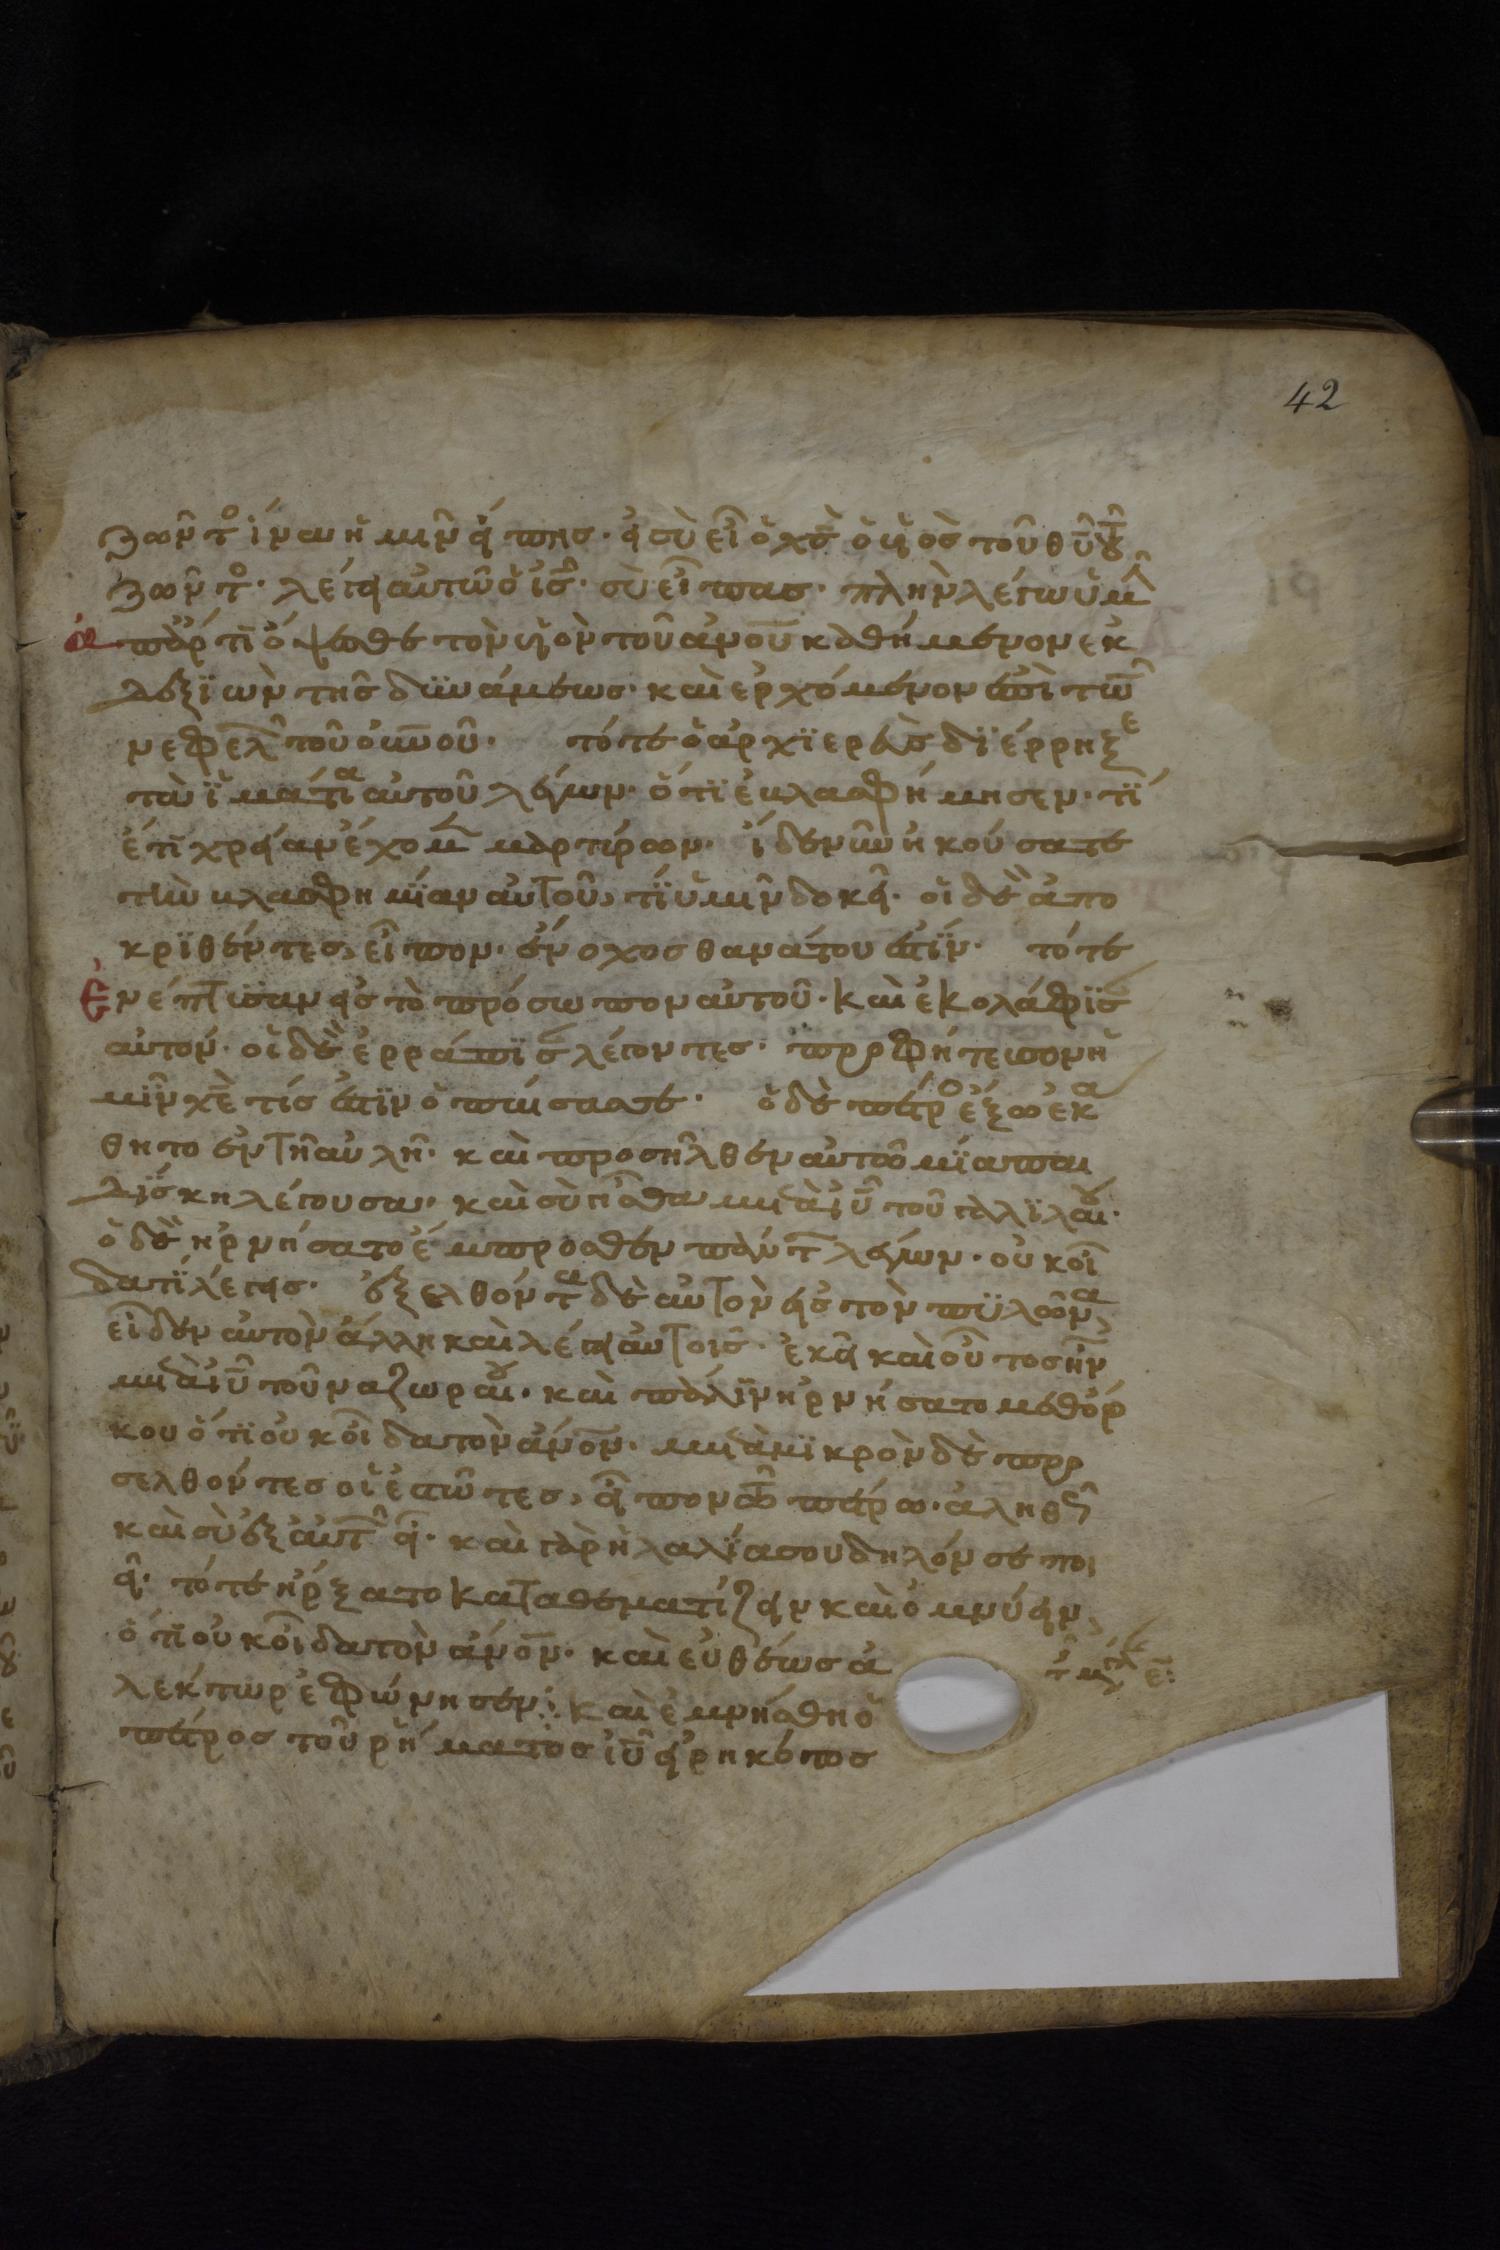 42
ζωντο ἵνα ἡμῖν εἴπης· εἰ σὺ εἶ ὁ χσ ὁ υἱὸσ τοῦ θυ τοῦ
ζωντο· λέγει αὐτῶ ὁ ισ· σὺ εἶπασ· πλὴν λέγω ὑμ
ἀπάρτι ὄψεσθε τὸν υἱὸν τοῦ ανου καθήμενον εκ
δεξϊῶν τῆσ δϋνάμεωσ· καὶ ερχόμενον ἐπὶ τῶ
νεφελ τοῦ ουνου· τότε ὁ ἀρχϊερεὺσ δϊέρρηξε
τὰ ϊμάτια αὐτοῦ λέγων· ὅτϊ ἐβλασφήμησεν· τί
ἔτϊ χρείαν ἔχομ μαρτύρων· ἴδε νῦν ἠκούσατε
τὴν βλασφημΐαν αὐτοῦ, τΐ ὑμῖν δοκεῖ· οἱ δὲ ἀπο
κρϊθέντεσ, εἶπον· ἔνοχοσ θανάτου ἐστΐν· τότε
Ἐνέπτϋσαν εἰσ τὸ πρόσωπον αὐτοῦ· καὶ ἐκολάφϊσ
αὐτόν· οἱ δὲ ἐρράπϊσ λέγοντεσ· προφήτευσον ἡ
μῖν χε τίσ ἐστϊν ὁ παίσασ σε· ὁ δὲ πέτρο ἔξω ἐκα
θητο ἐν τῆ αὐλῆ· καὶ προσῆλθεν αὐτῶ μΐα παι
δΐσκη λέγουσα· καὶ σὺ ἦσθα μετὰ ιυ τοῦ γαλϊλαίου·
ὁ δὲ ἠρνήσατο ἔμπροσθεν πάντ λέγων· οὐκ οἶ
δα τΐ λέγεισ· ἐξελθόντα δὲ αὐτὸν εἰσ τὸν πϋλῶνα,
εἶδεν αὐτὸν ἄλλη καὶ λέγει αὐτοῖσ· ἐκεῖ καὶ οὗτοσ ἦν
μετὰ ιυ τοῦ ναζωραίου· καὶ πάλϊν ἠρνήσατο μεθ ὅρ
κου ὅτϊ οὐκ οἶδα τὸν ανον· μετὰ μϊκρὸν δὲ προ
σελθόντεσ οἱ ἑστῶτεσ, εἶπον τῶ πέτρω· ἀληθῶσ
καὶ σὺ ἐξ αὐτ εἶ· καὶ γὰρ ἡ λαλΐα σου δηλόν σε ποι
εῖ· τότε ἤρξατο καταθεματίζειν καὶ ὀμνύειν,
ὅτϊ οὐκ οἶδα τὸν ανον· καὶ εὐθέωσ ἀ
λέκτωρ ἐφώνησεν: καὶ ἐμνήσθη ὁ
πέτροσ τοῦ ῥήματοσ ιυ εἰρηκότοσ